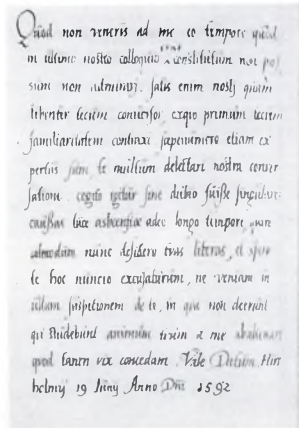 Quod non veneris ad me eo tempore quod
in ultimo nostro colloquio erat constitutum non pos
sum non admirari. Satis enim nosti quam
libenter tecum converser exquo primum tecum
familiaritatem contraxi sapenumero etiam ex
pertus sum te multum delectari nostra conver
satione. cogito igitur sine dubio fuisse
causas huic absentiae adeo longo tempore non
nunc desidero tuas literas, et spero
te hoc nuncio excusaturum, ne veniam in
suspitionem de te, in qua non deerunt
qui studebunt animum tuum a me
quod tamen vix concedam. Vale Datum Hirs
helmij 19 Junij Anno Dni 1592